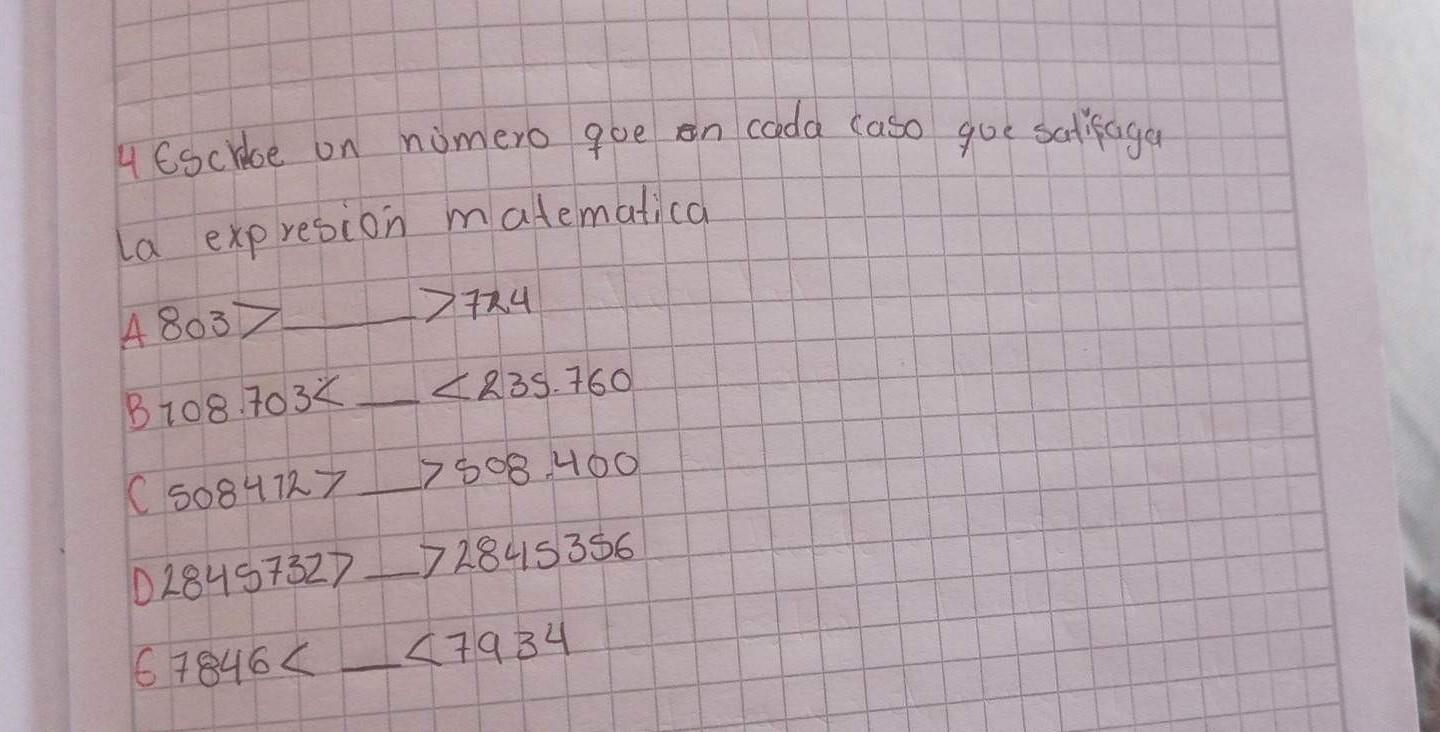 4 Escribe un número que en cada caso que satifaga
la expresión matematica
A 803>____>724
B 108.703<__<235.760
C 508412>__>508.400
D 2845732>__>2845356
E 7846<__<7934